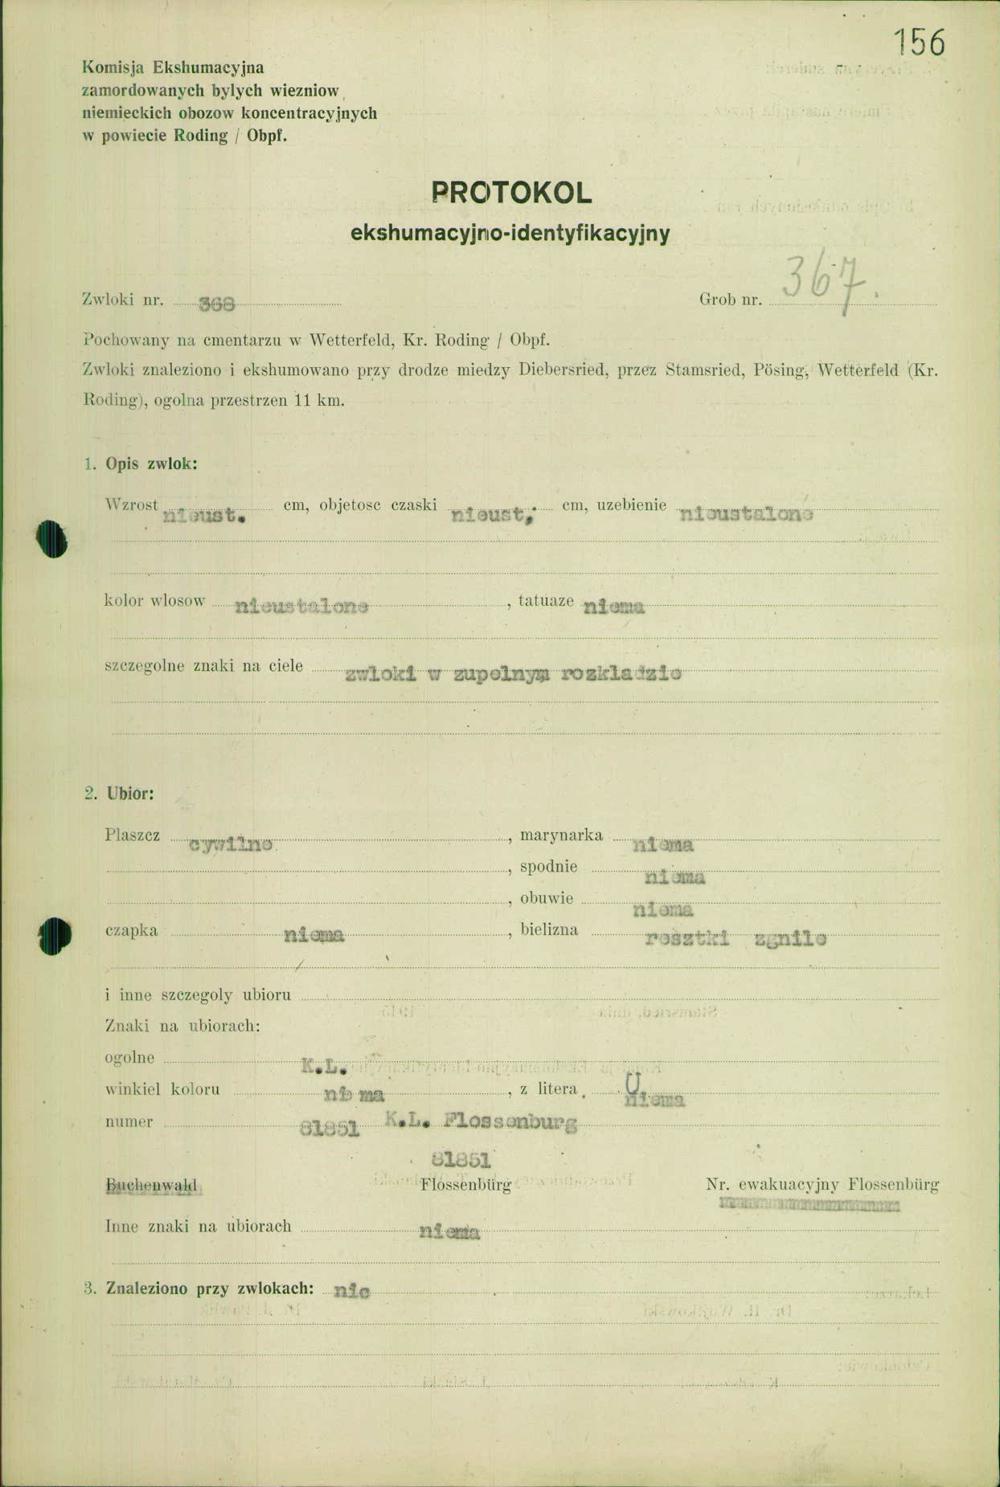 156
Komisja Ekshumacyjna
zamordowanych bylych wiezniow
niemieckich obozow koncentracyjnych
w powiecie Roding / Obpf.
PROTOKOL
ekshumacyjno-identyfikacyjny
Zwloki nr. 368 Grob nr. 367.
Pochowany na cmentarzu w Wetterfeld, Kr. Roding / Obpf.
Zwloki znaleziono i ekshumowano przy drodze miedzy Diebersried, przez Stamsried, Pösing, Wetterfeld (Kr.
Roding), ogolna przestrzen 11 km.
1. Opis zwlok:
Wzrost nieust. cm, objetosc czaski nieust, cm, uzebienie nieustalone
kolor wlosow nieustalone, tatuaze niema
szczegolne znaki na ciele zwloki w zupelnym rozkladzie
2. Ubior:
Plaszcz cywilne, marynarka niema
, spodnie niema
, obuwie niema
czapka niema, bielizna resztki zgnile
i inne szczegoly ubioru
Znaki na ubiorach:
ogolne K.L.
winkiel koloru niema, z litera U. niema
numer 81851 K.L. Flossenburg
81851
Buchenwald Flossenbürg Nr. ewakuacyjny Flossenbürg
Inne znaki na ubiorach niema
3. Znaleziono przy zwlokach: nic